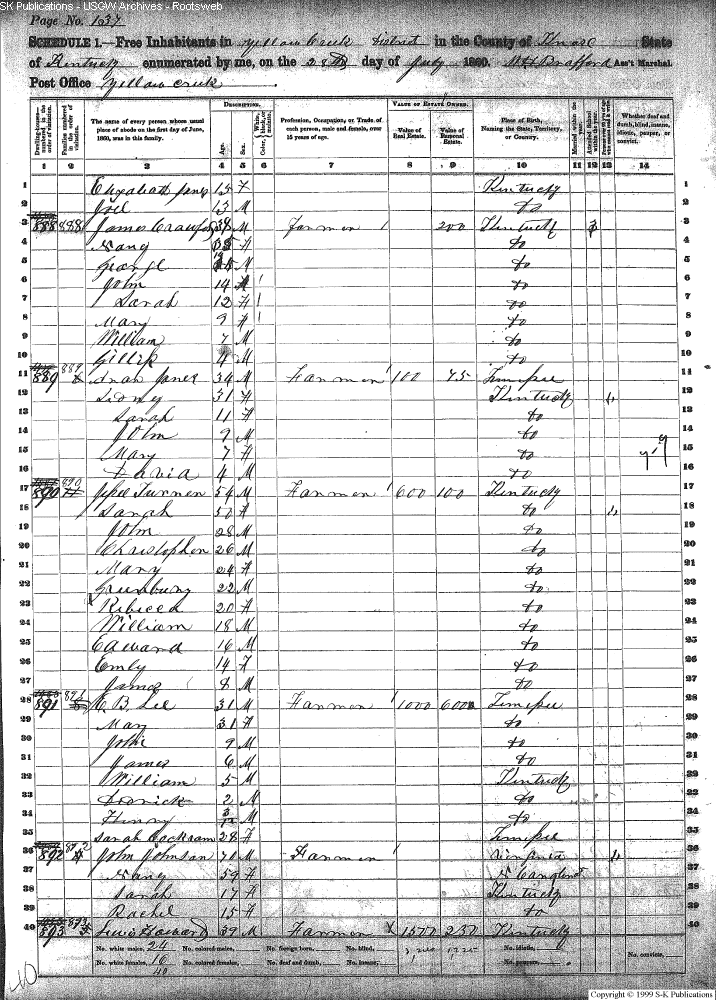 SK Publications - USGW Archives - Rootsweb
Page No. 137
SCHEDULE 1.—Free Inhabitants in Yellow Creek District in the County of Knox State
of Kentucky enumerated by me, on the 28th day of July 1860. Ass't Marshal.
Post Office Yellow Creek
DESCRIPTION. VALUE OF ESTATE OWNED.
Dwelling-houses—numbered in the order of visitation. Families numbered in the order of visitation. The name of every person whose usual place of abode on the first day of June, 1860, was in this family. Age. Sex. Color, White, black, or mulatto. Profession, Occupation, or Trade of each person, male and female, over 15 years of age. Value of Real Estate. Value of Personal Estate. Place of Birth, Naming the State, Territory, or Country. Married within the year. Attended School within the year. Whether deaf and dumb, blind, insane, idiotic, pauper, or convict.
1 2 3 4 5 6 7 8 9 10 11 12 13 14
1 Elizabeth Jones 15 F Kentucky 1
2 Joel 13 M do 2
3 888 888 James Crawford M Farmer 1 200 Kentucky 3
4 do 4
5 George M do 5
6 John 14 do 6
7 Sarah 12 F do 7
8 Mary 9 F do 8
9 William 7 M do 9
10 4 M do 10
11 889 889 Jones 34 M Farmer 1 100 75 11
12 Sidney 31 F Kentucky 12
13 Sarah 11 F do 13
14 John 9 M do 14
15 Mary 7 F do 15
16 David 4 M do 16
17 890 890 Turner 54 M Farmer 1 600 100 Kentucky 17
18 Sarah 50 F do 18
19 John 28 M do 19
20 Christopher 26 M do 20
21 Mary 24 F do 21
22 22 M do 22
23 Rebecca 20 F do 23
24 William 18 M do 24
25 Edward 16 M do 25
26 Emly 14 F do 26
27 James 8 M do 27
28 891 891 B Lee 31 M Farmer 1 1000 6000 28
29 Mary 31 F do 29
30 John 9 M do 30
31 James 6 M do 31
32 William 5 M Kentucky
33 2 M do
34 Henry M do
35 Sarah Cockram 28 F
36 892 892 John Johnson 70 M Farmer 1 Virginia
37 59 F
38 Sarah 17 F Kentucky
39 Rachel 15 F do
40 893 893 Howard 39 M Farmer 1500 250 Kentucky
No. white males, 24 No. colored males, No. foreign born, No. blind, No. idiotic,
No. white females, 16 No. colored females, No. deaf and dumb, No. insane, No. paupers, No. convicts,
40
Copyright © 1999 S-K Publications